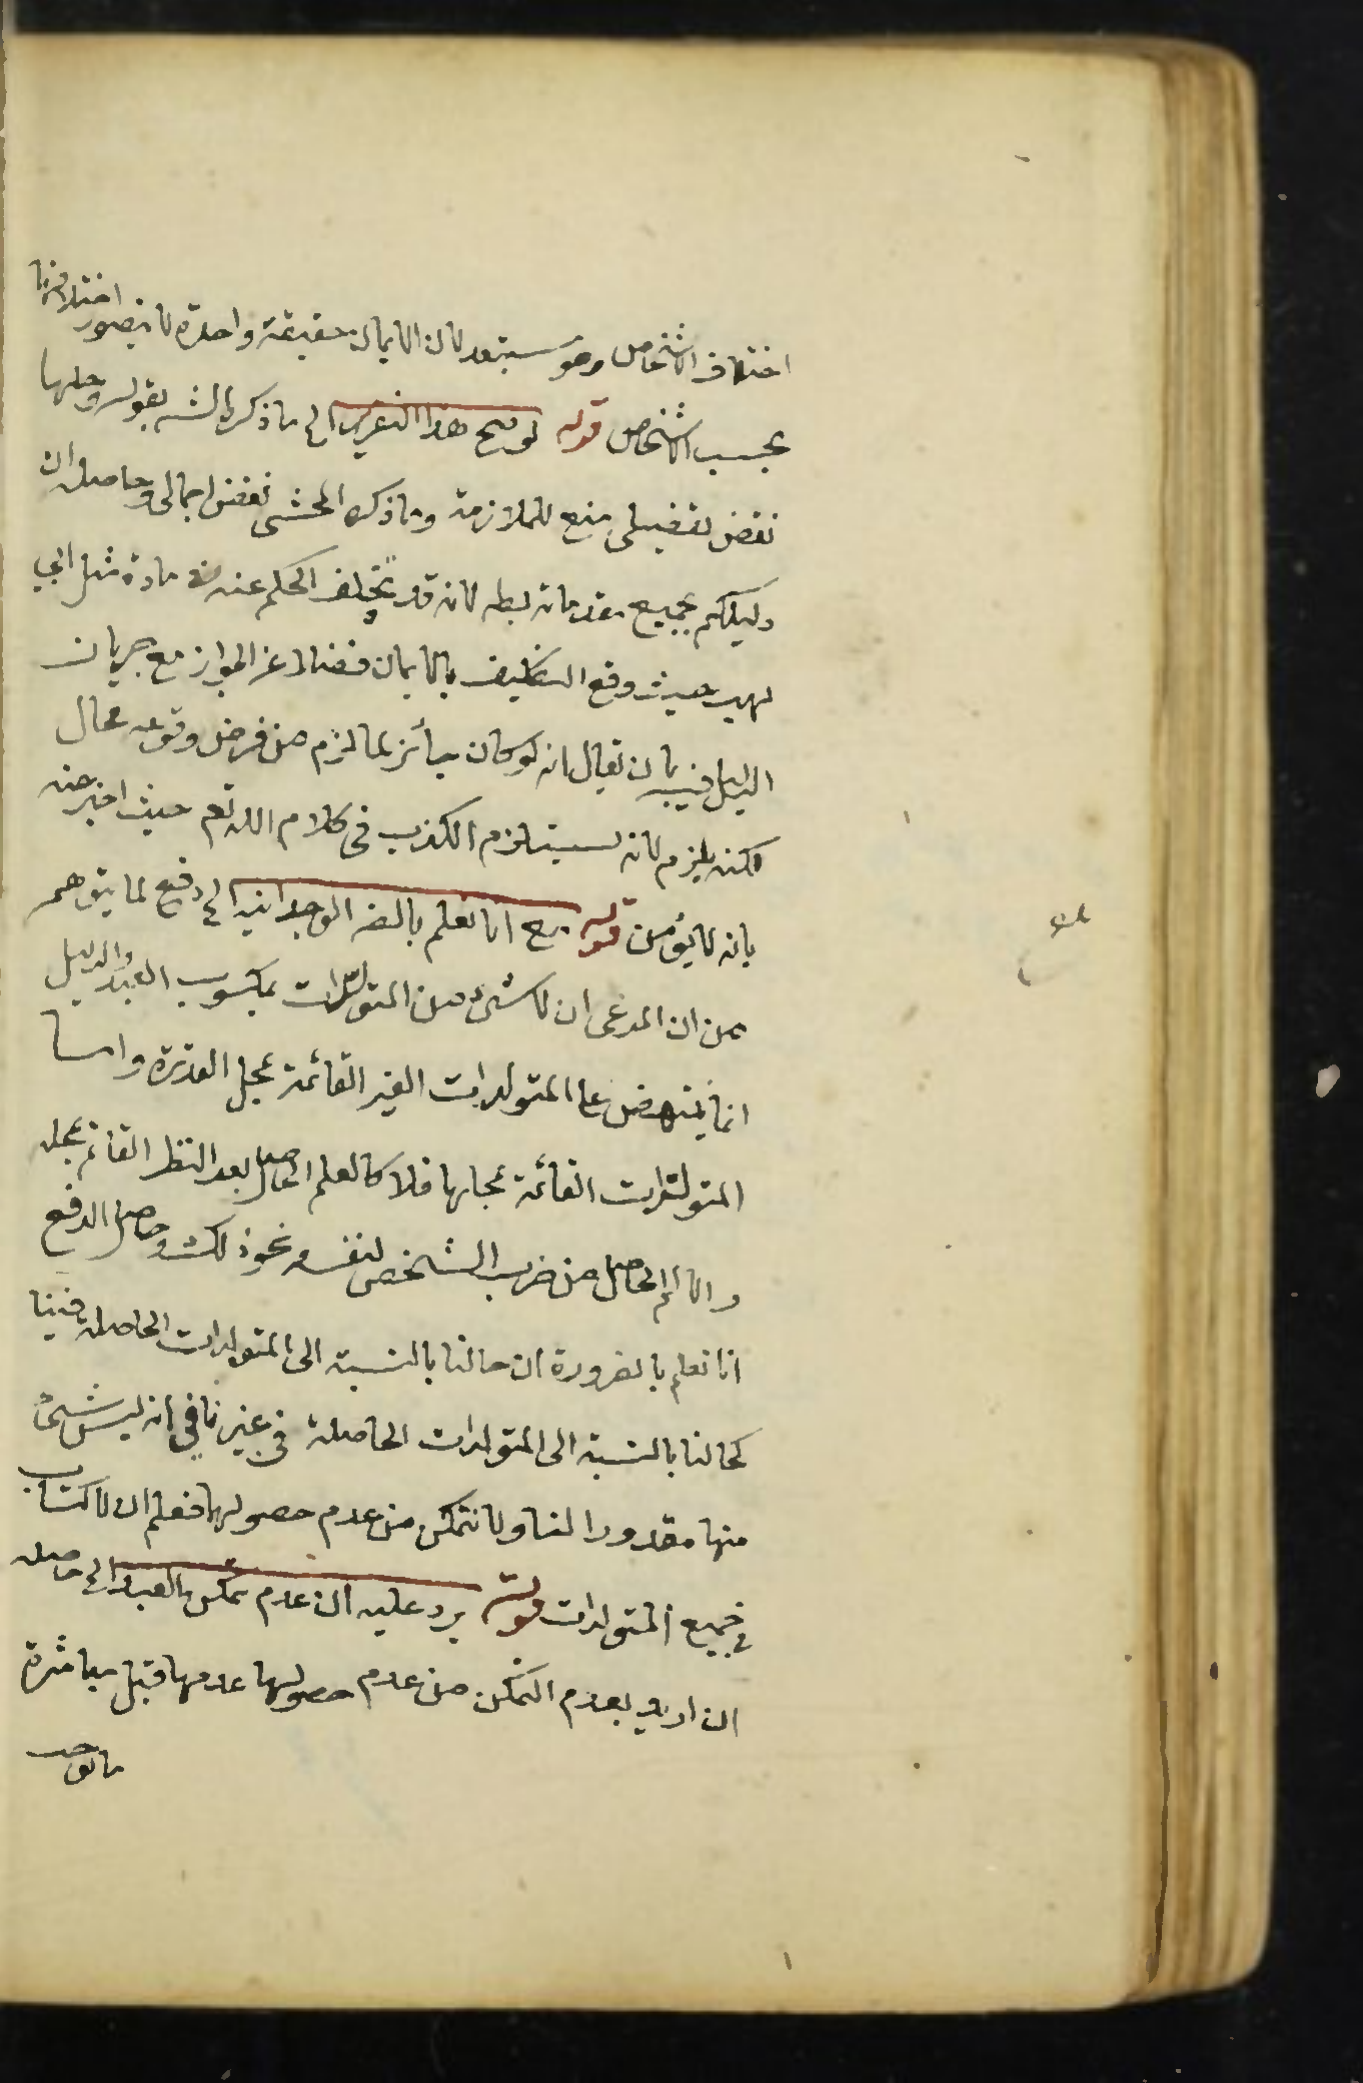 اختلاف الاشخاص وهو مستبعد لان الايمان حقيقة واحدة لا يتصور اختلافها
بحسب الاشخاص قوله لو صح هذا التقرير الخ ما ذكره الشـ بقوله وحلها
نقض تفصيلى منع للملازمة وما ذكره المحشى نقض اجمالى وحاصله ان
دليلكم بجميع مقدماته بط لانه قد تخلف الحكم عنه فى مادة مثل ابي
لهب حيث وقع التكليف بالايمان فضلا عن الجواز مع جريان
الدليل فيه بان يقال انه لو كان جائز لما لزم من فرض وقوعه محال
لكنه يلزم لانه يستلزم الكذب فى كلام الله تع حيث اخبر عنه
بانه لا يؤمن قوله مع انا نعلم بالضر الوجدانية الخ دفع لما يتوهم
من ان المدعى ان لا شئ من المتولدات بمكسوب العبد والدليل
انما ينتهض على المتولدات الغير القائمة بمحل القدرة واما
المتولدات القائمة بمحلها فلا كالعلم الحاصل بعد النظر القائم بمحله
والالم الحاصل من ضرب الشخص لنفسه ونحو ذلك وحاصل الدفع
انا نعلم بالضرورة ان حالنا بالنسبة الى المتولدات الحاصلة فينا
كحالنا بالنسبة الى المتولدات الحاصلة فى غيرنا فى انه ليس شئ
منها مقدورا لنا ولا نتمكن من عدم حصولها فنعلم ان لا اكتساب
فى جميع المتولدات قوله يرد عليه ان عدم تمكن العبد الخ حاصله
ان اريد بعدم التمكن من عدم حصولها عدمها قبل مباشرة
ما يوجب